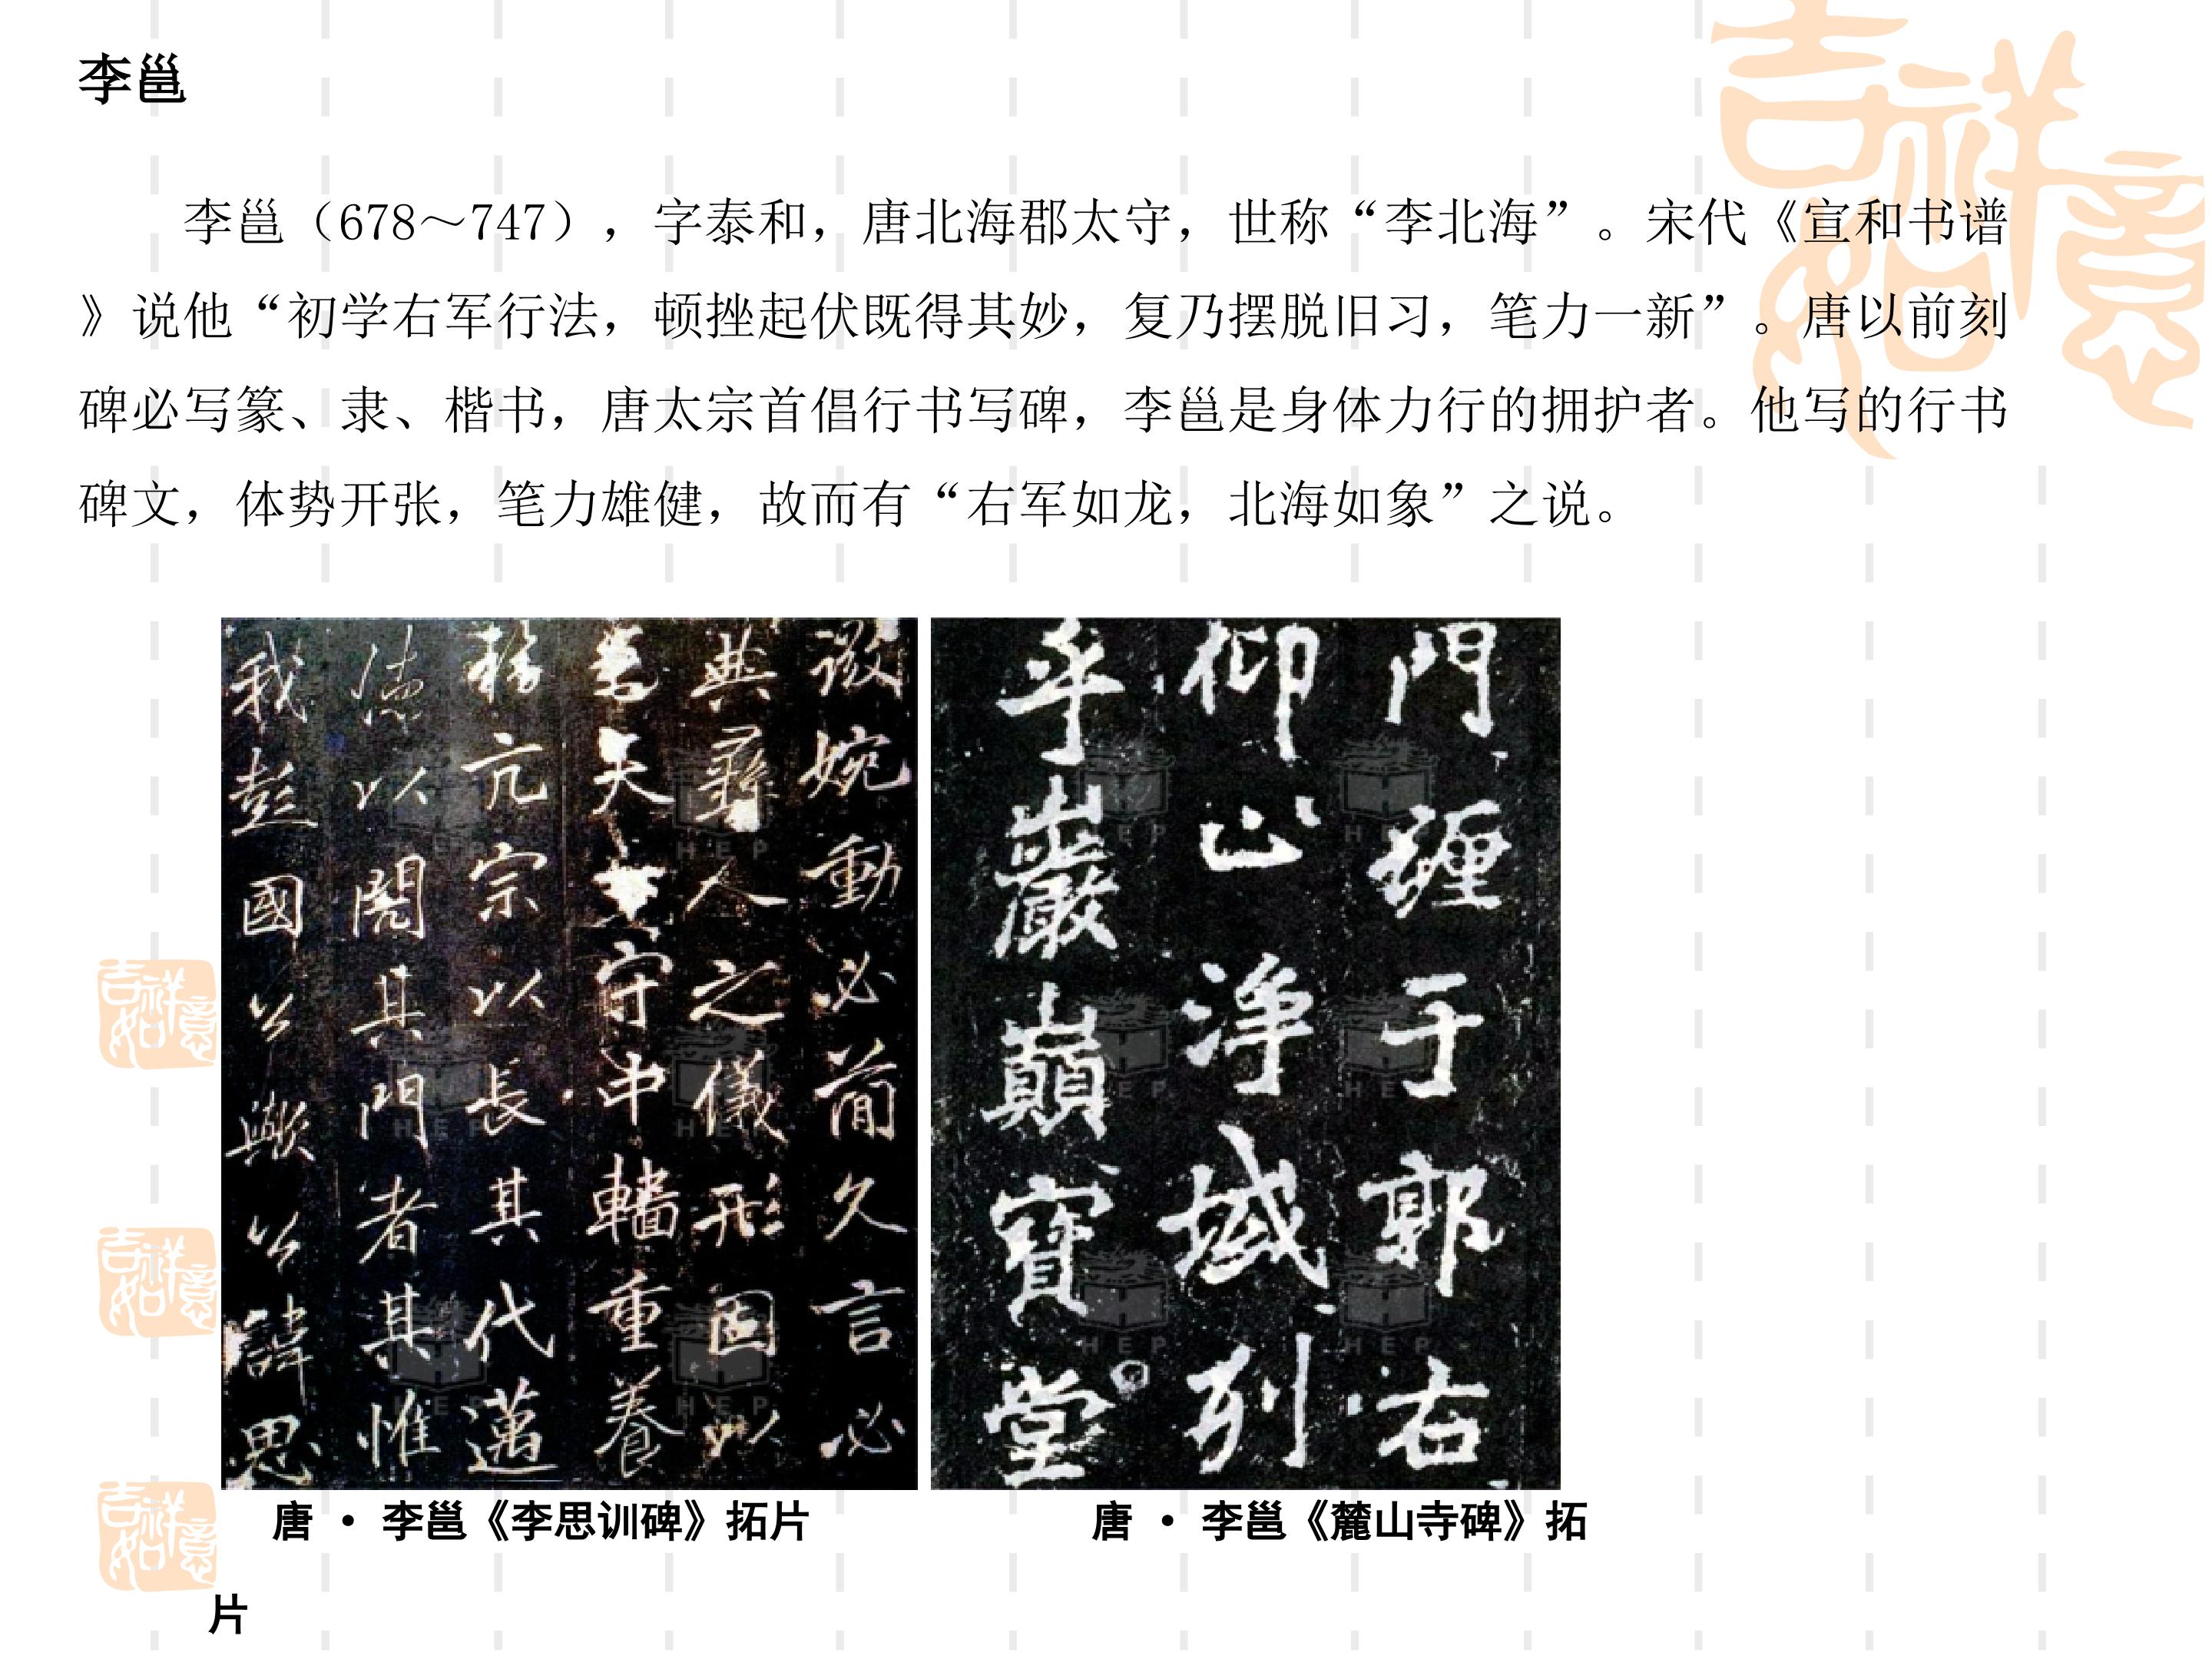 李邕
李邕（678～747），字泰和，唐北海郡太守，世称“李北海”。宋代《宣和书谱
》说他“初学右军行法，顿挫起伏既得其妙，复乃摆脱旧习，笔力一新”。唐以前刻
碑必写篆、隶、楷书，唐太宗首倡行书写碑，李邕是身体力行的拥护者。他写的行书
碑文，体势开张，笔力雄健，故而有“右军如龙，北海如象”之说。
吉祥如意
微婉動必簡久言必
典彝人之儀形固以
夫守中轖重養
亢宗以長其代邁
德以閱其門者其惟
我彭國公歟公諱思
門纏于郭右
仰止淨域列
乎巖巔寶堂
HEP
吉祥如意
吉祥如意
吉祥如意
唐 • 李邕《李思训碑》拓片
唐 • 李邕《麓山寺碑》拓
片